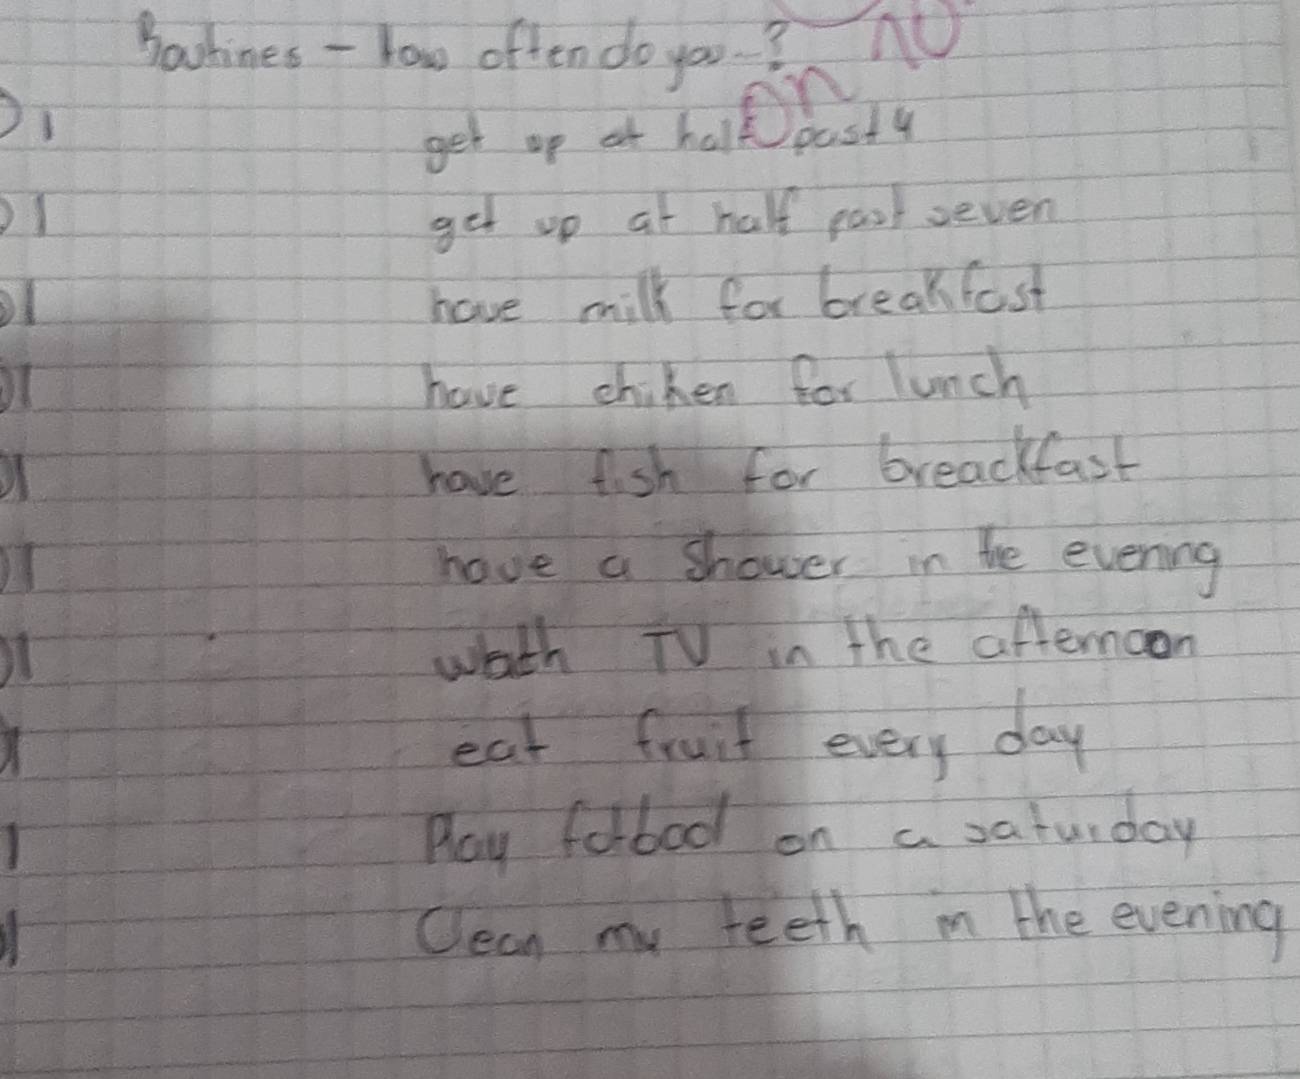 Routines - How often do you - ? no
on
1 get up at half past 4
1 get up at half past seven
1 have milk for breakfast
1 have chiken for lunch
1 have fish for breackfast
1 have a shower in the evening
1 wath TV in the afternoon
1 eat fruit every day
1 Play fotbool on a saturday
1 Clean my teeth in the evening